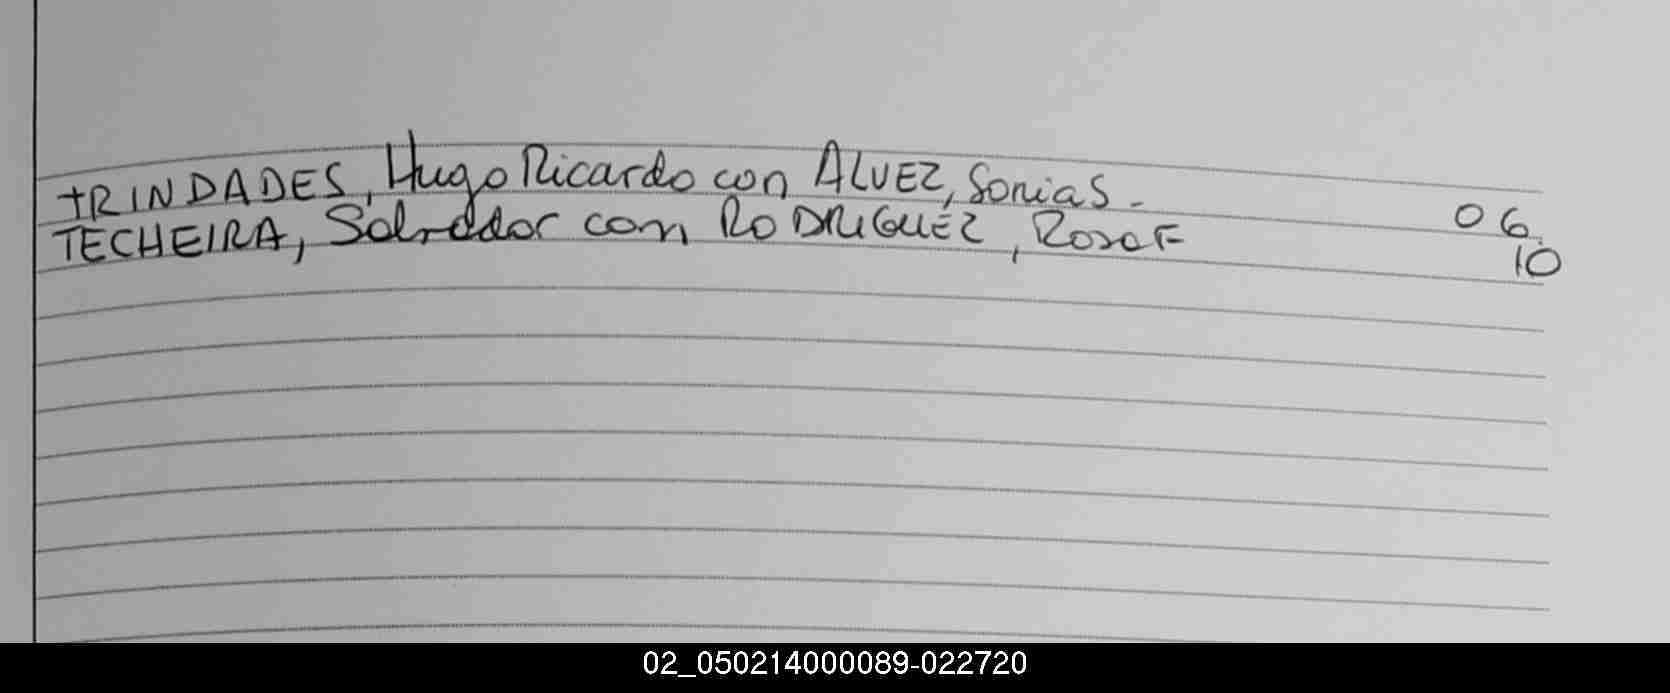 tRINDADES, Hugo Ricardo con ALVEZ, Sonia S. 06.
TECHEIRA, Salvador con RODRIGUEZ, Rosa F 10
02_050214000089-022720